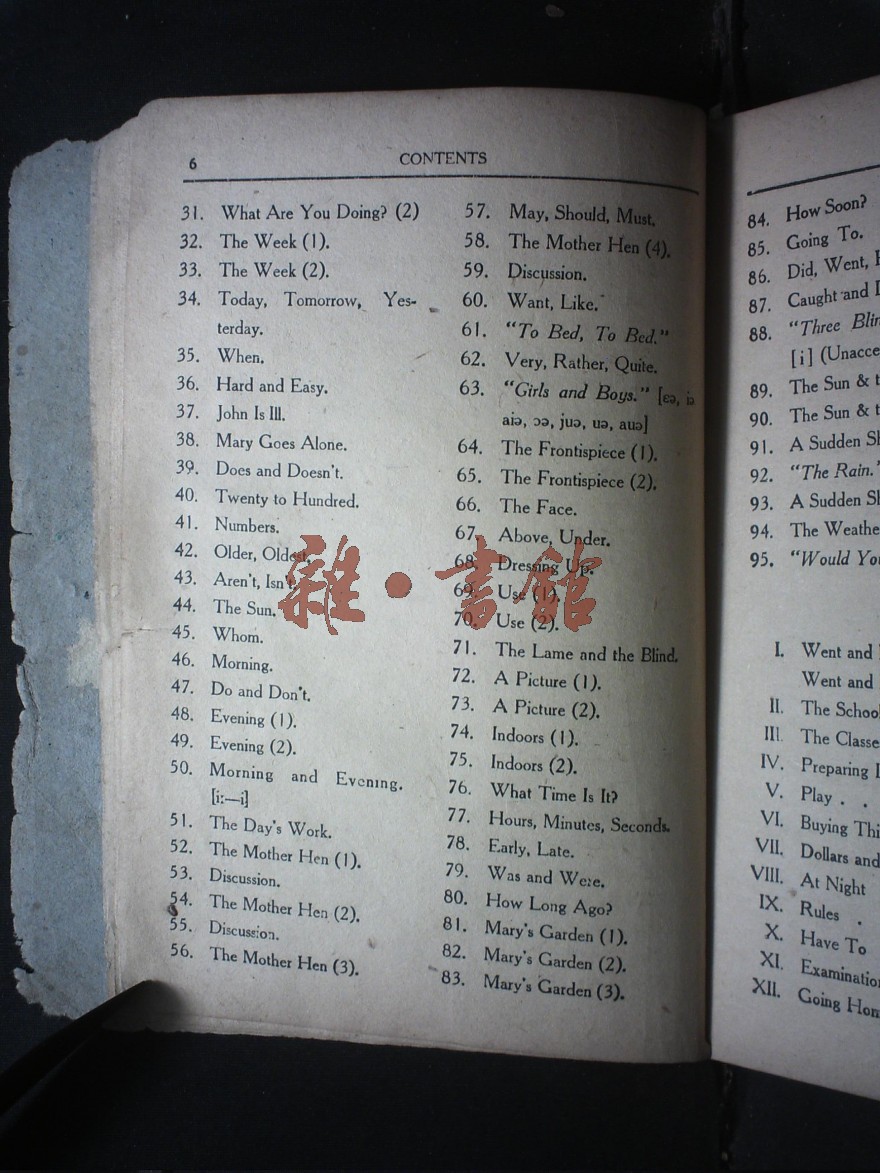 6 CONTENTS
31. What Are You Doing? (2)
32. The Week (1).
33. The Week (2).
34. Today, Tomorrow, Yes-
terday.
35. When.
36. Hard and Easy.
37. John Is Ill.
38. Mary Goes Alone.
39. Does and Doesn't.
40. Twenty to Hundred.
41. Numbers.
42. Older, Oldest.
43. Aren't, Isn't.
44. The Sun.
45. Whom.
46. Morning.
47. Do and Don't.
48. Evening (1).
49. Evening (2).
50. Morning and Evening.
[i:—i]
51. The Day's Work.
52. The Mother Hen (1).
53. Discussion.
54. The Mother Hen (2).
55. Discussion.
56. The Mother Hen (3).
57. May, Should, Must.
58. The Mother Hen (4).
59. Discussion.
60. Want, Like.
61. "To Bed, To Bed."
62. Very, Rather, Quite.
63. "Girls and Boys." [ɛə, iə
aiə, ɔə, juə, uə, auə]
64. The Frontispiece (1).
65. The Frontispiece (2).
66. The Face.
67. Above, Under.
68. Dressing Up.
69. Use (1).
70. Use (2).
71. The Lame and the Blind.
72. A Picture (1).
73. A Picture (2).
74. Indoors (1).
75. Indoors (2).
76. What Time Is It?
77. Hours, Minutes, Seconds.
78. Early, Late.
79. Was and Were.
80. How Long Ago?
81. Mary's Garden (1).
82. Mary's Garden (2).
83. Mary's Garden (3).
雜·書館
84. How Soon?
85. Going To.
86. Did, Went,
87. Caught and
88. "Three
[i] (
89. The Sun &
90. The Sun &
91. A Sudden
92. "The Rain."
93. A Sudden
94. The
95. "Would
I. Went and
Went and
II. The
III. The
IV. Preparing
V. Play . .
VI. Buying
VII. Dollars and
VIII. At Night
IX. Rules .
X. Have To
XI.
XII. Going